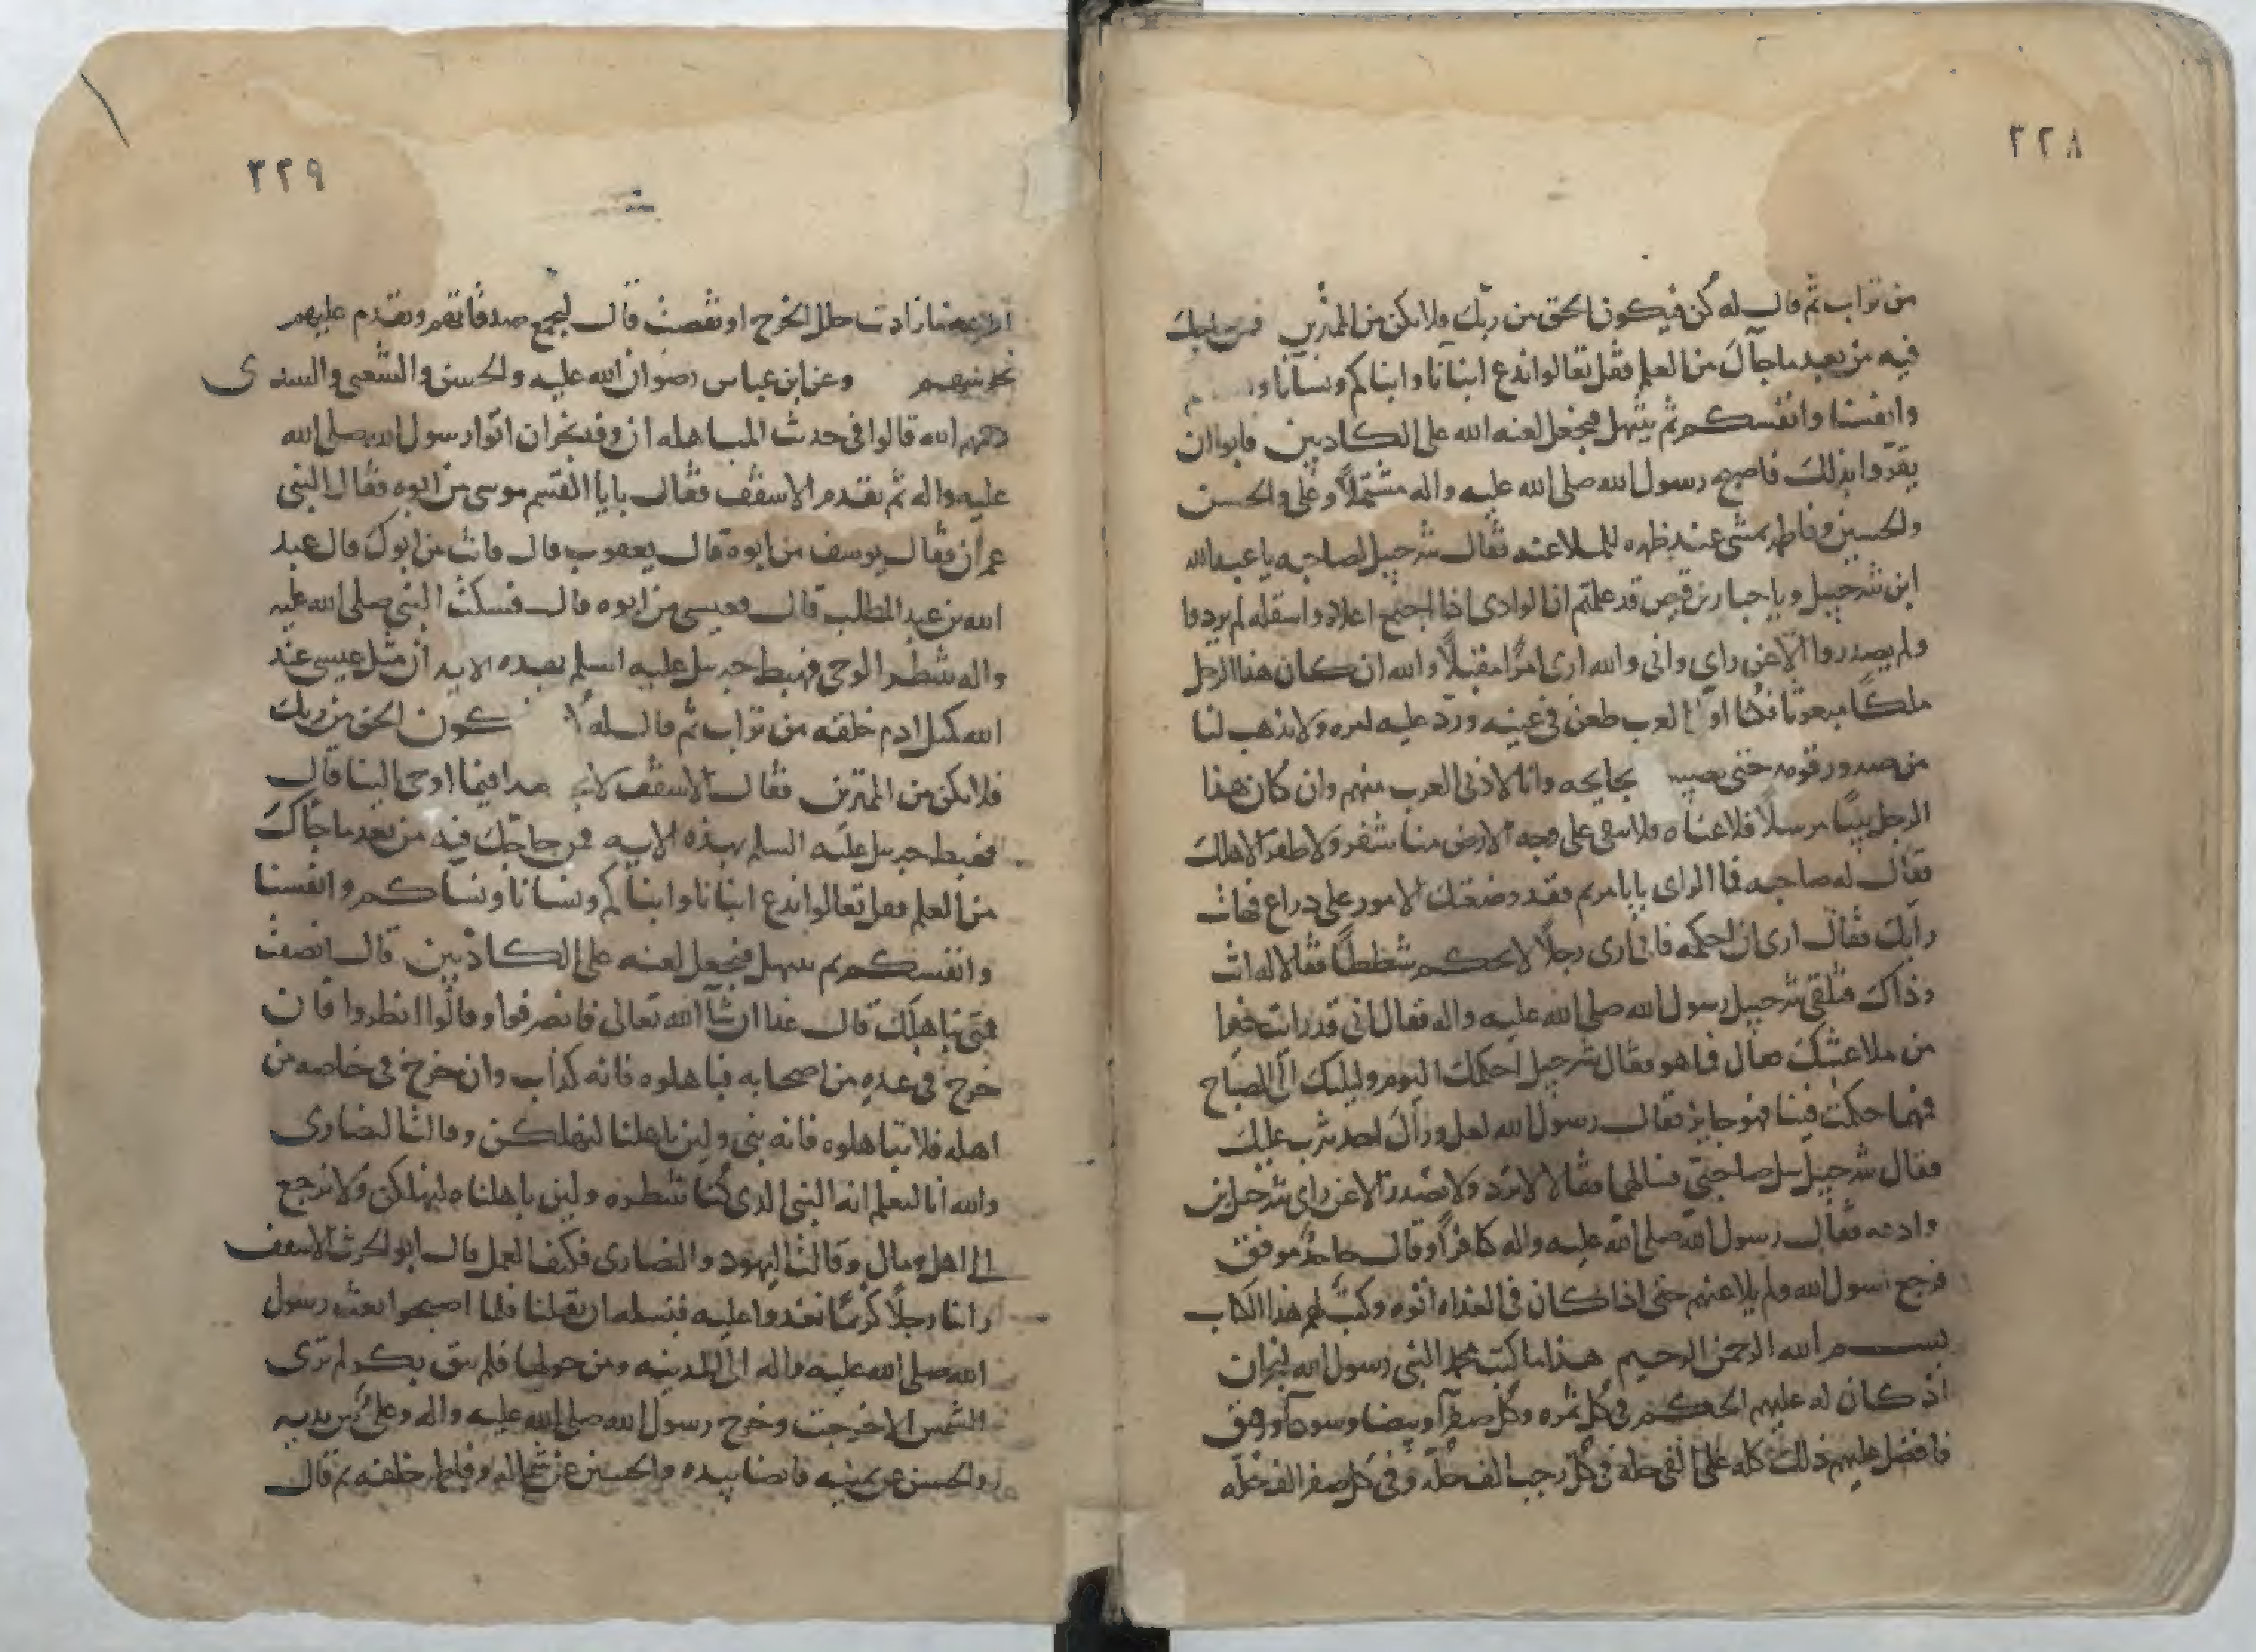 ٣٢٨
من تراب ثم قال له كن فيكون الحق من ربك ولا تكن من الممترين فمن حاجك
فيه من بعد ما جآك من العلم فقل تعالوا ندع ابنانا وابناكم ونسآنا
وانفسنا وانفسكم ثم نبتهل فنجعل لعنه الله على الكاذبين فابوا ان
يقرّوا بذلك فاصبح رسول الله صلى الله عليه واله مشتملاً وعلى والحسن
والحسين وفاطمه تمشى عند ظهره للملاعنه فقال شرحبيل لصاحبه يا عبدالله
ابن شرحبيل ويا جبار بن قيص قد علمتم ان الوادى اذا اجتمع اعلاه واسفله لم يردوا
ولم يصدروا الا عن راي وانى والله ارى امرًا مقبلاً والله ان كان هذا الرجل
ملكًا مبعوثا فكنا اول العرب طعن فى عينه وردّ عليه امره ولا يذهب لنا
من صدور قومه حتى بجايحه وانا لادنى العرب منهم وان كان هذا
الرجل نبيًا مرسلاً فلاعناه ولا يبقى على وجه الارض منا شعر ولا ظفر الا هلك
فقال له صاحبه فما الراى يا با مريم فقد وضعتك الامور على ذراع فهات
رأيك فقال ارى ان احكمه فانى ارى رجلاً لا يحكم شططًا فقالا له انت
وذاك فتلقى شرحبيل رسول الله صلى الله عليه واله فقال انى قد رايت خيرا
من ملاعنتك فقال فما هو فقال شرحبيل احكمك اليوم وليلتك الى الصباح
فهما حكمت فينا فهو جايز فقال رسول الله لعل ورآك احد يثرب عليك
فقال شرحبيل سل صاحبيّ فسالهما فقالا لا نرد ولا نصدر الا عن راى شرحبيل بن
وادعه فقال رسول الله صلى الله عليه واله كافرًا وقال جاحد موفق
فرجع رسول الله ولم يلاعنهم حتى اذا كان فى الغداه اتوه وكتب لهم هذا الكتاب
بسم الله الرحمن الرحيم هذا ما كتب محمد النبى رسول الله لنجران
اذ كان له عليهم الحكم فى كل ثمره وكل صفرآ وبيضا وسودآ ورقيق
فافضل عليهم ذلك كله على الفى حله فى كل رجب الف حله وفى كل صفر الف حله
٣٢٩
فما زادت حلل الخرج او نقصت قال ليجمع صدقاتهم ويقدم عليهم
وعن ابن عباس رضوان الله عليه والحسن والشعبى والسدى
رحمهم الله قالوا فى حديث المباهله ان وفد نجران اتوا رسول الله صلى الله
عليه واله ثم تقدم الاسقف فقال يابا القسم موسى من ابوه فقال النبى
عمران فقال يوسف من ابوه قال يعقوب قال فانت من ابوك قال عبد
الله بن عبد المطلب قال فعيسى من ابوه قال فسكت النبى صلى الله عليه
واله ننتظر الوحى فهبط جبريل عليه السلم بهذه الايه ان مثل عيسى عند
الله كمثل ادم خلقه من تراب ثم قال له الحق من ربك
فلا تكن من الممترين فقال الاسقف لا نجد هذا فيما اوحى الينا قال
فهبط جبريل عليه السلم بهذه الايه فمن حاجّك فيه من بعد ما جآك
من العلم فقل تعالوا ندع ابنانا وابناكم ونسانا ونساكم وانفسنا
وانفسكم ثم نبتهل فنجعل لعنه على الكاذبين قال انصفت
فمتى نباهلك قال غدا ان شآ الله تعالى فانصرفوا وقالوا انظروا فان
خرج فى عده من اصحابه فباهلوه فانه كذاب وان خرج فى خاصه من
اهله فلا تباهلوه فانه نبى ولين باهلنا لنهلكن وقالت النصارى
والله انا لنعلم انه النبى الذى كنا ننتظره ولين باهلناه ليهلكن ولا نرجع
الى اهل ومال وقالت اليهود والنصارى فكيف العمل قال ابو الحرث الاسقف
راينا رجلاً كريمًا نغدوا عليه فنسله ان يقيلنا فلما اصبحوا بعث رسول
الله صلى الله عليه واله الى المدينه ومن حولها فلم يبق بكر لم ترى
الشمس الا خرجت وخرج رسول الله صلى الله عليه واله وعلى بين يديه
والحسن عن يمينه قابضا بيده والحسين عن شماله وفاطمه خلفه ثم قال